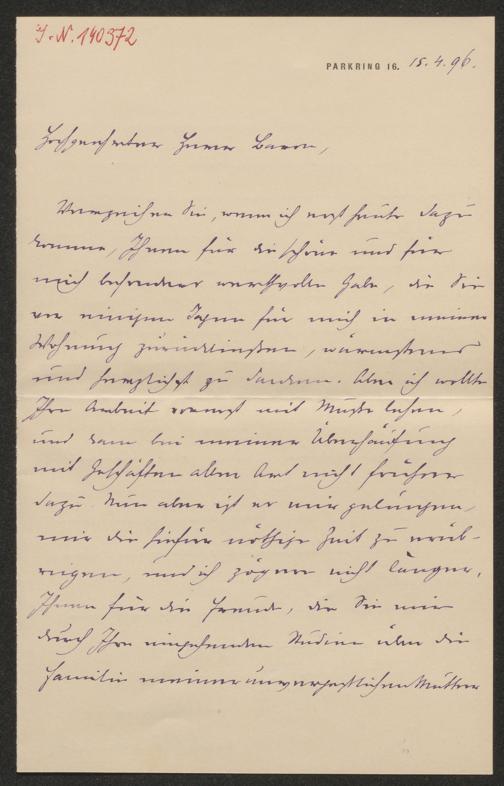 J. N. 140372
PARKRING 16. 15. 4. 96.
Hochgeehrter Herr Baron,
Verzeihen Sie, wenn ich erst heute dazu
komme, Ihnen für die schöne und für
mich besonders werthvolle Gabe, die Sie
vor einigen Tagen für mich in meiner
Wohnung zurückließen, wärmstens
und herzlichst zu danken. Aber ich wollte
Ihre Arbeit vorerst mit Muße lesen,
und kam bei meiner Überhäufung
mit Geschäften aller Art nicht früher
dazu. Nun aber ist es mir gelungen,
mir die hiefür nöthige Zeit zu erüb-
rigen, und ich zögere nicht länger,
Ihnen für die Freude, die Sie mir
durch Ihre eingehenden Studien über die
Familie meiner unvergeßlichen Mutter